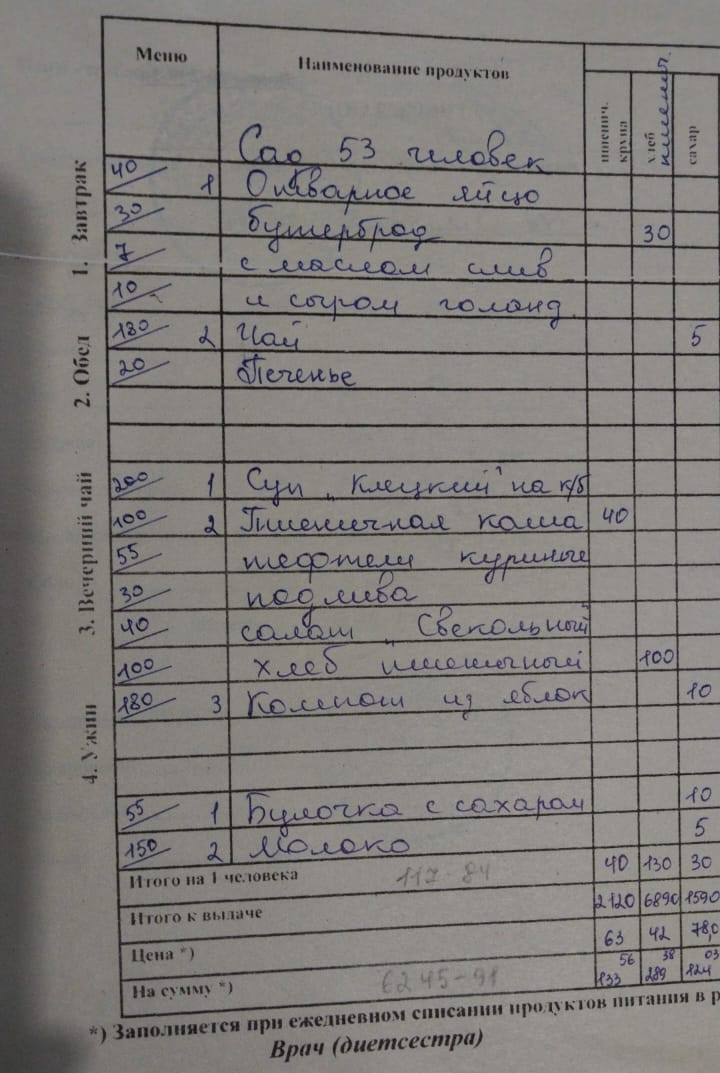 Меню Наименование продуктов пшенич. крупа хлеб пшенич. сахар
Сад 53 человек
1. Завтрак
40 1 Отварное яйцо
30 бутерброд 30
7 с маслом слив
10 и сыром голанд.
180 2 Чай 5
20 Печенье
2. Обед
200 1 Суп „Клецкий" на к/б
100 2 Пшеничная каша 40
55 тефтели куриные
30 подлива
40 салат „Свекольный
100 хлеб пшеничный 100
180 3 Компот из яблок 10
3. Вечерний чай
4. Ужин
55 1 Булочка с сахаром 10
150 2 Молоко 5
Итого на 1 человека 117-84 40 130 30
Итого к выдаче 2120 6890 1590
Цена *) 63 42 78,0
На сумму *) 6245-91 133 56 289 38 124 03
*) Заполняется при ежедневном списании продуктов питания в р
Врач (диетсестра)